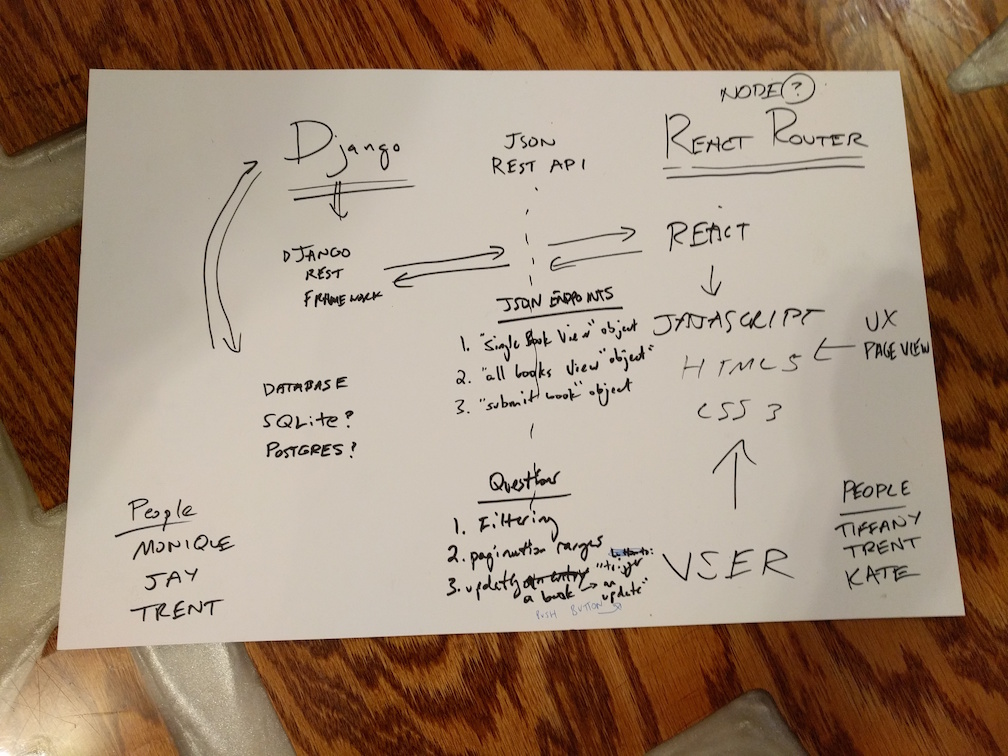 NODE ?
Django
JSON
REST API
REACT ROUTER
DJANGO
REST
FRAMEWORK
REACT
JSON ENDPOINTS
1. "Single Book View" object
2. "all books view" object"
3. "submit book" object
JAVASCRIPT
HTML5
CSS 3
UX
PAGE VIEW
DATABASE
SQLite?
POSTGRES?
Questions
1. Filtering
2. pagination ranges
3. updating an entry
a book
"trigger
an
update"
PUSH BUTTON
USER
People
MONIQUE
JAY
TRENT
PEOPLE
TIFFANY
TRENT
KATE